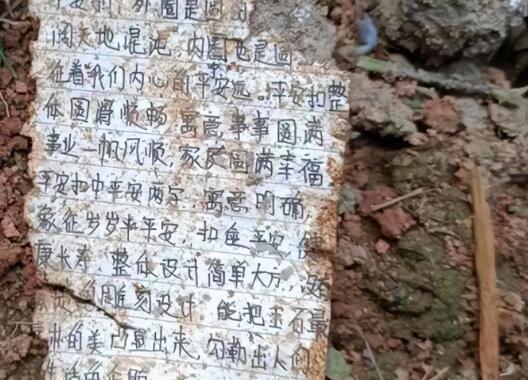 平安扣,外圈是圆
阔天地混沌,内圈也是圆,
征着我们内心的平安远。平安扣整
体圆滑顺畅,寓意事事圆满
事业一帆风顺,家庭圆满幸福
平安扣中平安两字,寓意明确,
象征岁岁年平安,扣住平安,健
康长寿,整体设计简单大方,
的雕刻设计,能把玉石最
的美凸显出来,勾勒出人们